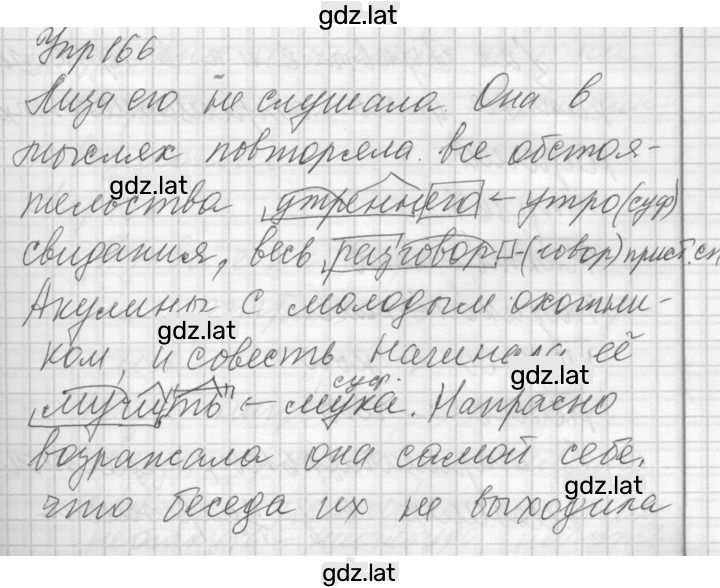 gdz.lat
Упр 166
Лиза его не слушала. Она в
мыслях повторяла все обстоя-
gdz.lat
тельства утреннего ← утро (суф)
свидания, весь разговор - (говор) прист. сп
Акулины с молодым охотни-
gdz.lat
ком, и совесть начинала её
gdz.lat
суф.
мучить ← мука. Напрасно
возражала она самой себе,
gdz.lat
что беседа их не выходила
gdz.lat